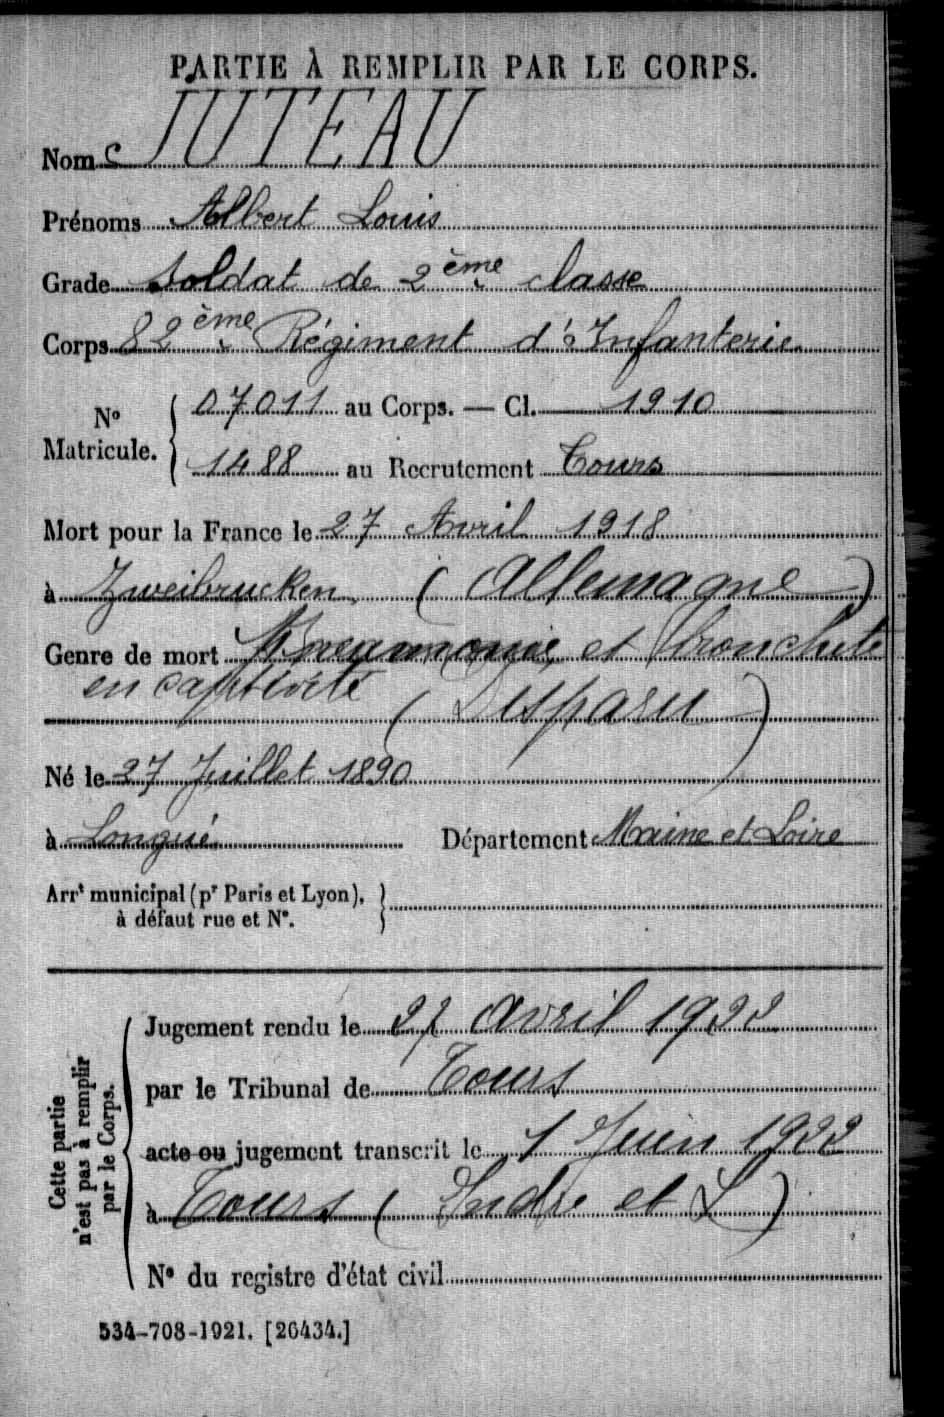 PARTIE À REMPLIR PAR LE CORPS.
Nom JUTEAU
Prénoms Albert Louis
Grade Soldat de 2ème classe
Corps 82ème Régiment d'Infanterie
Nº Matricule. { 07011 au Corps. — Cl. 1910
1488 au Recrutement Tours
Mort pour la France le 27 Avril 1918
à Zweibrucken (Allemagne)
Genre de mort Pneumonie et bronchite
en captivité (Disparu)
Né le 27 Juillet 1890
à Longué Département Maine et Loire
Arrt municipal (pr Paris et Lyon),
à défaut rue et Nº.
Cette partie
n'est pas à remplir
par le Corps.
Jugement rendu le 27 Avril 1922
par le Tribunal de Tours
acte ou jugement transcrit le 1 Juin 1922
à Tours (Indre et L)
Nº du registre d'état civil
534-708-1921. [26434.]